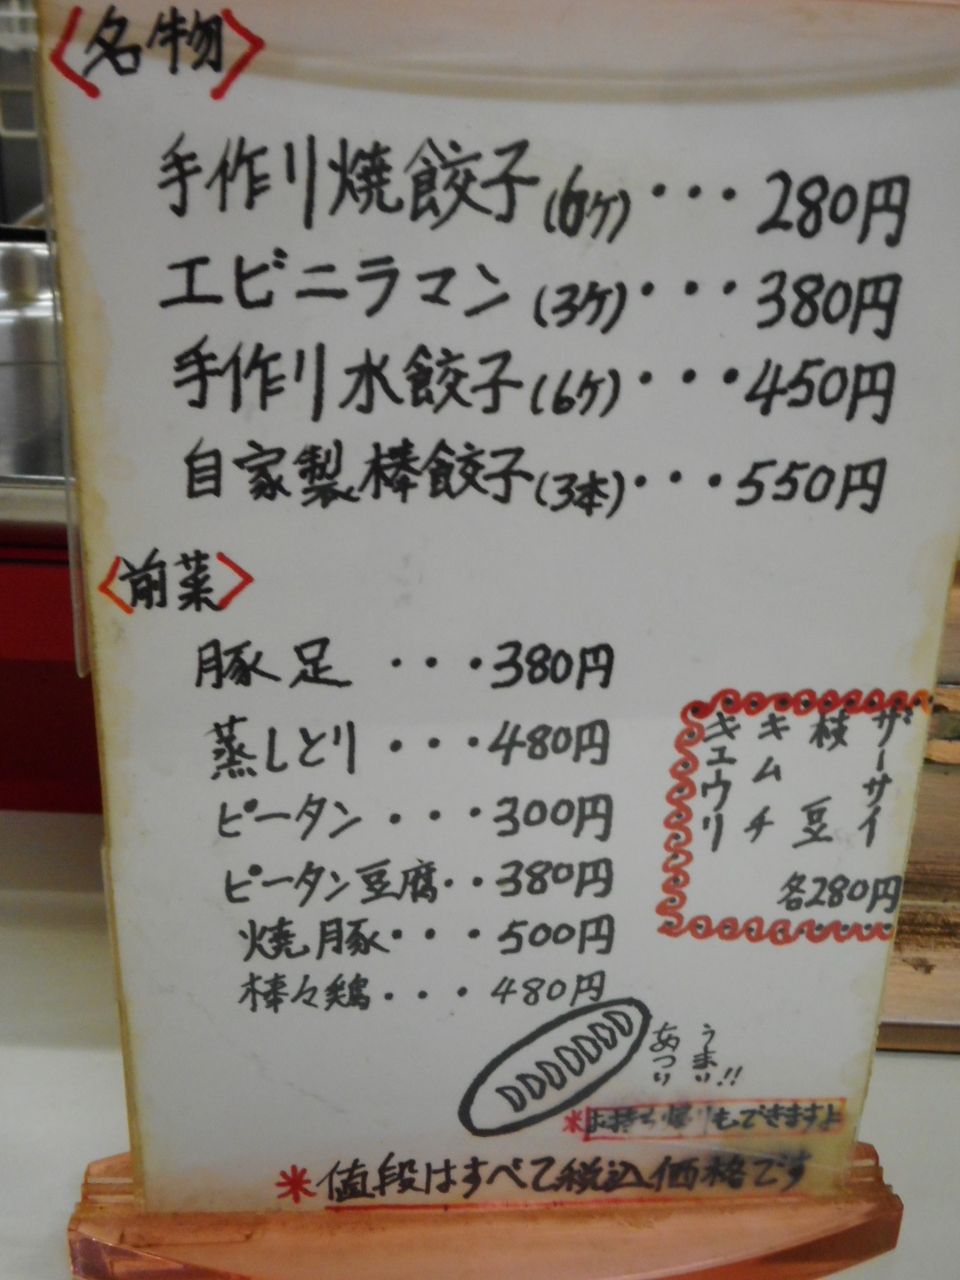 〈名物〉
手作り焼餃子(6ケ)・・・280円
エビニラマン(3ケ)・・・380円
手作り水餃子(6ケ)・・・450円
自家製棒餃子(3本)・・・550円
〈前菜〉
豚足・・・380円
蒸しとり・・・480円
ピータン・・・300円
ピータン豆腐・・380円
焼豚・・・500円
棒々鶏・・・480円
ザーサイ
枝豆
キムチ
キュウリ
各280円
うまい!!
あつい
※お持ち帰りもできますよ
※値段はすべて税込価格です